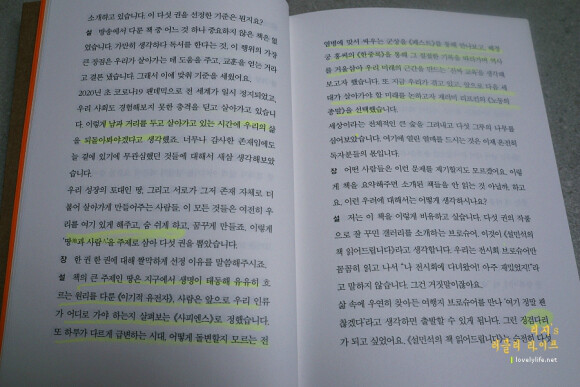 소개하고 있습니다. 이 다섯 권을 선정한 기준은 뭔지요?
설 방송에서 다룬 책 중 어느 것 하나 중요하지 않은 책은 없
었습니다. 가만히 생각하다 독서를 한다는 것, 이 행위의 가장
큰 장점은 우리가 살아가는 데 도움을 주고, 교훈을 얻는 거라
고 결론 냈습니다. 그래서 이에 맞춰 기준을 세웠어요.
2020년 초 코로나19 팬데믹으로 전 세계가 일시 정지되었고,
우리 사회도 경험해보지 못한 충격을 딛고 살아가고 있습니
다. 이렇게 남과 거리를 두고 살아가고 있는 시간에 우리의 삶
을 되돌아봐야겠다고 생각했죠. 너무나 감사한 존재임에도
늘 곁에 있기에 무관심했던 것들에 대해서 새삼 생각해보았
습니다.
우리 성장의 모태인 땅, 그리고 서로가 그저 존재 자체로 더
불어 살아가게 만들어주는 사람들, 이 모든 것들은 여전히 우
리를 여기 있게 해주고, 숨 쉬게 하고, 꿈꾸게 만들죠. 이렇게
'땅'과 사람'을 주제로 삼아 다섯 권을 뽑았습니다.
장 한 권 한 권에 대해 짤막하게 선정 이유를 말씀해주시죠.
설 책의 큰 주제인 땅은 지구에서 생명이 태동해 유유히 흐
르는 원리를 다룬 《이기적 유전자》, 사람은 앞으로 우리 인류
가 어디로 가야 하는지 살펴보는 《사피엔스》로 정했습니다.
또 하루가 다르게 급변하는 시대, 어떻게 돌변할지 모르는 전
염병에 맞서 싸우는 군상을 《페스트》를 통해 만나보고, 혜경
궁 홍씨의 《한중록》을 통해 그 절절한 기록을 따라가며 역사
를 거울삼아 우리 미래의
보고자 했습니다. 또 지금 우리가 겪고 있고, 앞으로 다음 세
대가 살아가야 할 미래를 논하고자 제러미 리프킨의 《노동의
종말》을 선택했습니다.
세상이라는 전체적인 큰 숲을 그려내고 다섯 그루의 나무를
심어보았습니다. 여기에 열린 열매를 드시는 것은 이제 온전히
독자분들의 몫입니다.
장 어떤 사람들은 이런 문제를 제기할지도 모르겠어요. 이렇
게 책을 요약해주면 소개된 책들을 안 읽는 것 아닌가, 하고
요. 이런 우려에 대해서는 어떻게 생각하시나요?
설 저는 이 책을 이렇게 비유하고 싶습니다. 다섯 권의 작품
으로 잘 꾸민 갤러리를 소개하는 브로슈어, 이것이 《설민석의
책 읽어드립니다》라고 생각합니다. 우리는 전시회 브로슈어만
꼼꼼히 읽고 나서 "나 전시회에 다녀왔어! 아주 재밌었지!"라
고 말하지 않습니다. 그건 거짓말이겠지요.
삶 속에 우연히 찾아든 여행지 브로슈어를 만나 '여기 정말 괜
찮겠다'라고 생각하면 출발할 수 있게 됩니다. 그런 징검다리
가 되고 싶었어요. 《설민석의 책 읽어드립니다》는
리지's
러블리 라이프
lovelylife.net